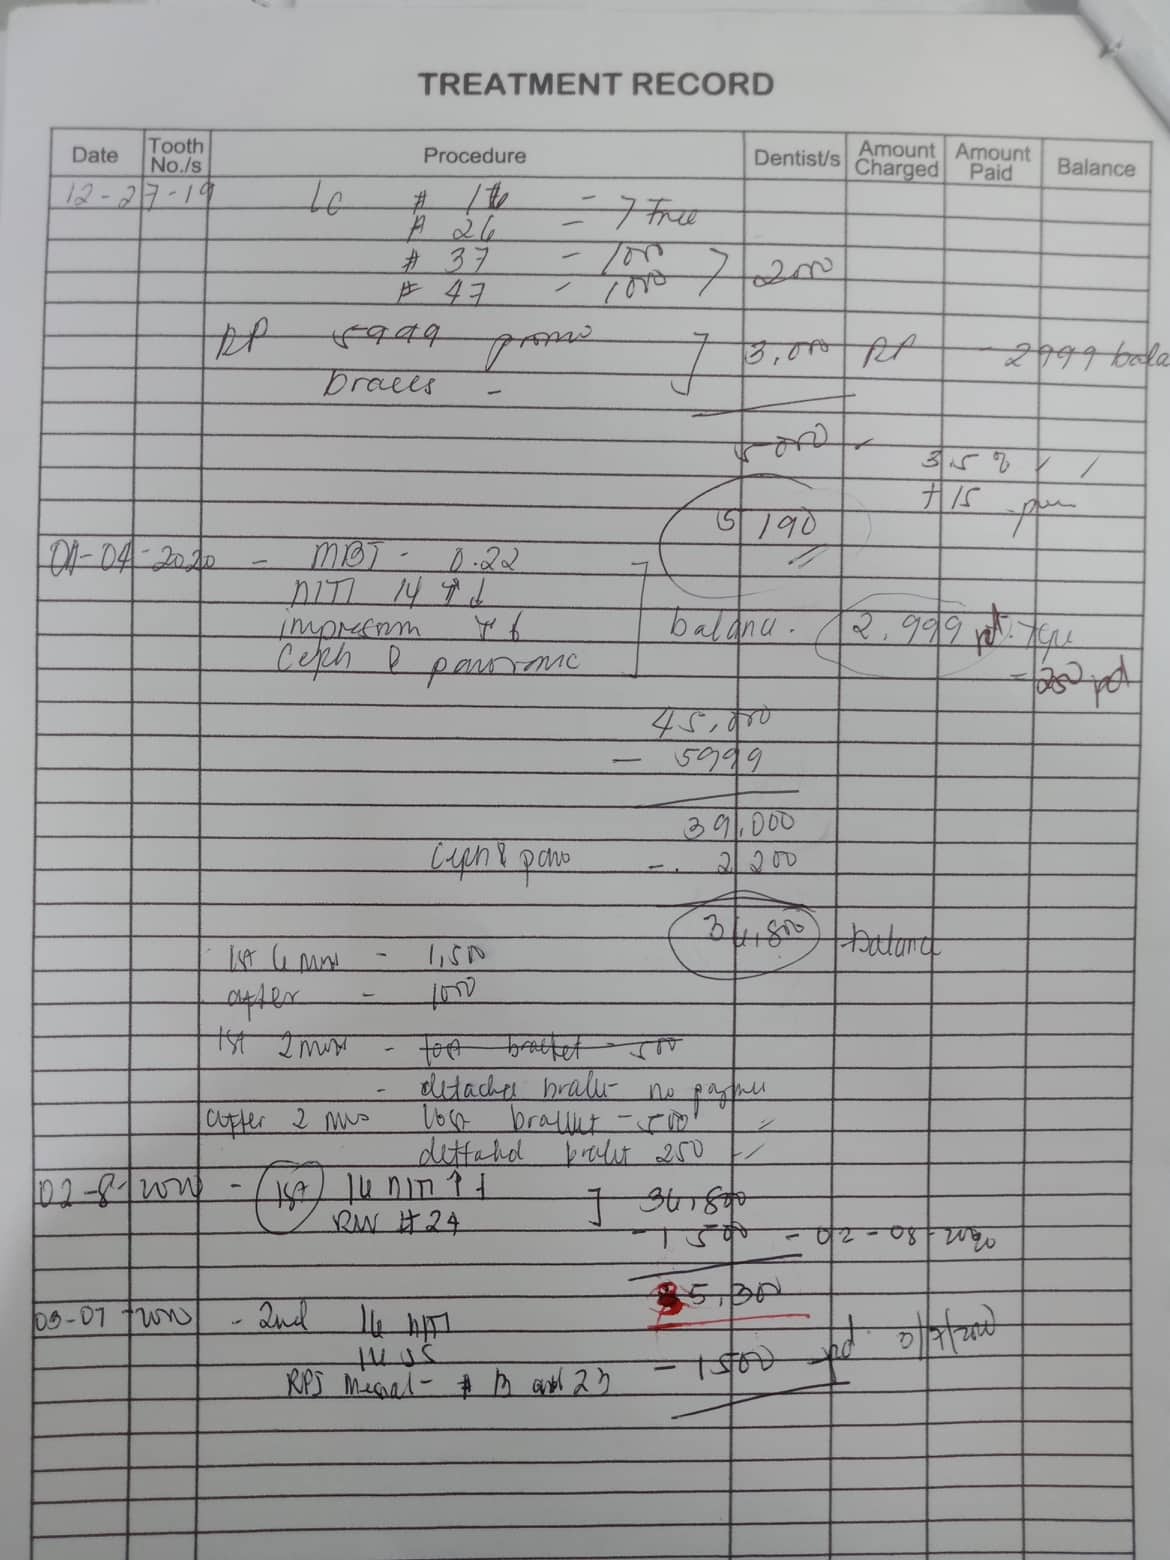 TREATMENT RECORD
Date Tooth No./s Procedure Dentist/s Amount Charged Amount Paid Balance
12-27-19 LC # 16 - 7 Free
# 26 -
# 37 - 1000
# 47 - 1000 > 2000
RP 5999 promo ] 3,000 RP - 2999 bala
braces -
5000
3.5 %
+ 15
5190
01-04-2020 - MBT - 0.22
NITI 14 ↑↓
balance. 2,999 pd.
Ceph & panoramic - 250 pd
45,000
- 5999
39,000
Ceph & pano - 2200
36,800 balance
1st 6 mos - 1,500
after - 1000
1st 2 mos - lost bracket - 500
- detached bracket - no payme
after 2 mos lost bracket - 500
dettahd braket 250
02-8-2020 - 1st 14 NITI ↑↓ ] 36,800
RW #24
- 1500 - 02-08-2020
35,300
03-07-2020 - 2nd 16 NITI
14 SS
- 1500 pd
- # 13 and 23